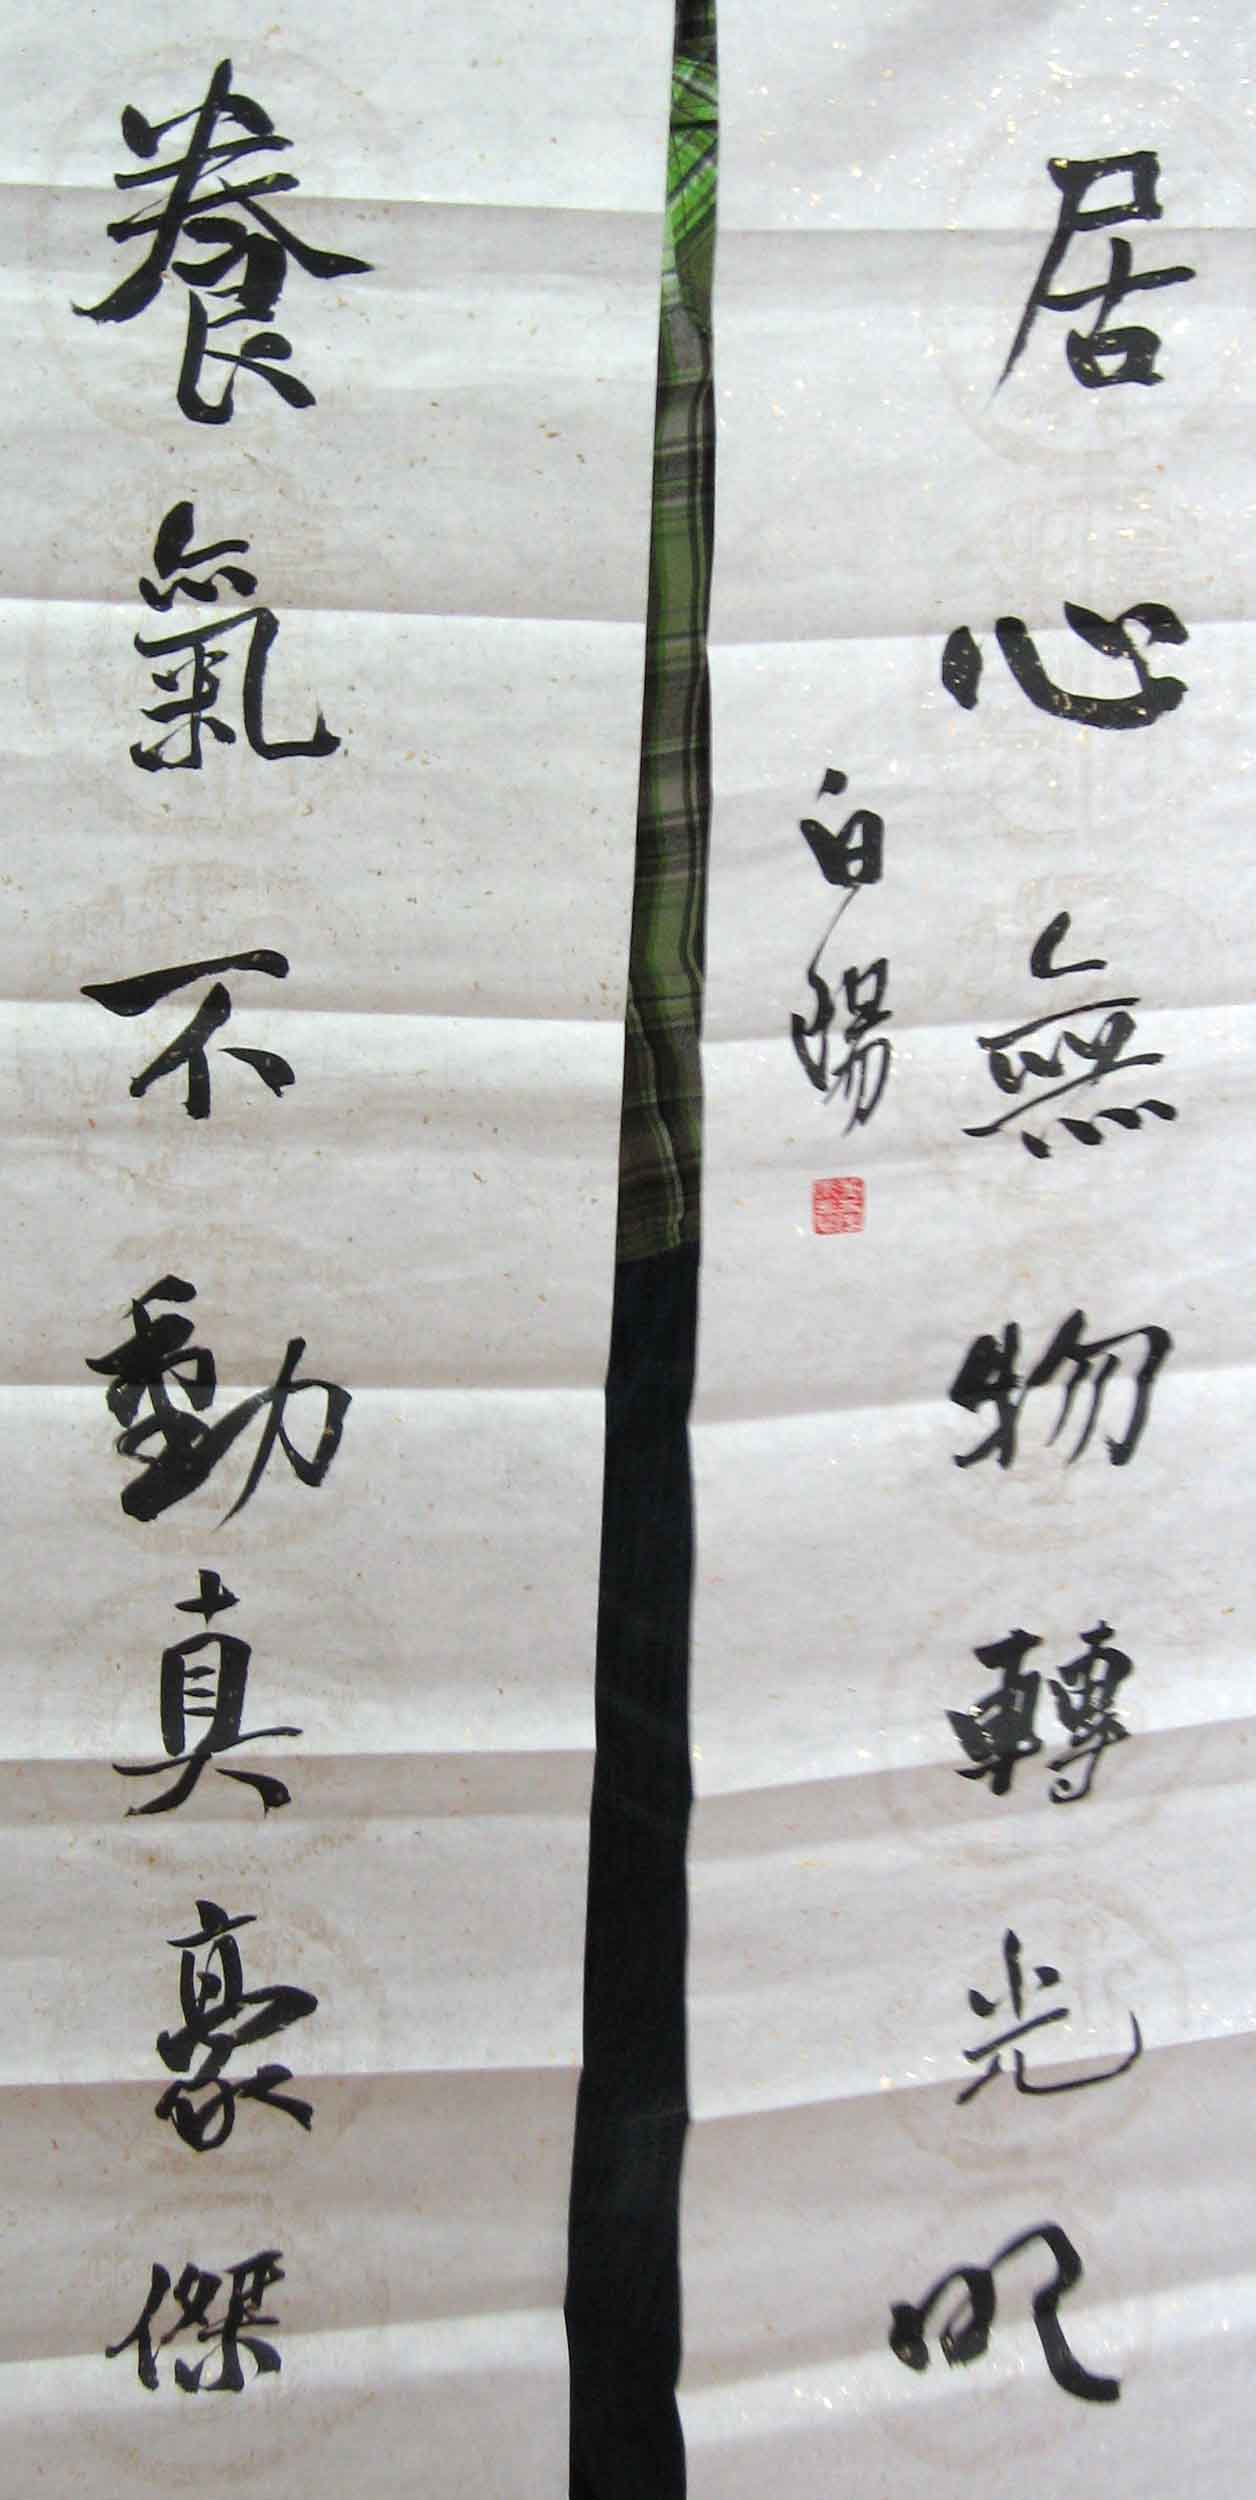 養氣不動真豪傑
居心無物轉光明
白陽